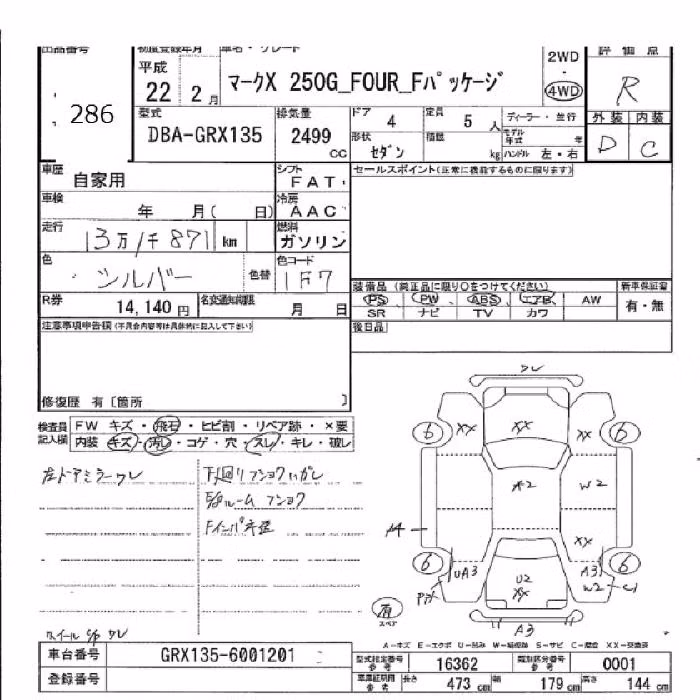 出品番号 初度登録年月 車名・グレード 評価点
平成 22 2月 マークX 250G_FOUR_Fパッケージ 2WD・4WD R
286
型式 排気量 ドア 4 定員 5人 ディーラー・並行 外装 内装
DBA-GRX135 2499cc 形状 セダン 積載 kg モデル年式 年 ハンドル 左・右 D C
車歴 自家用 シフト FAT セールスポイント(正常に機能するものに限ります)
車検 年 月( 日) 冷房 AAC
走行 13万1千871 km 燃料 ガソリン
色 シルバー 色替 色コード 1F7
装備品(純正品に限り○をつけてください) 新車保証書
R券 14,140円 名変通知期限 月 日 PS PW ABS エアB AW 有・無
SR ナビ TV カワ
注意事項申告欄(不具合内容等は具体的に記入して下さい) 後日品
修復歴 有〔箇所 〕
検査員記入欄 FW キズ・飛石・ヒビ割・リペア跡・×要
内装 キズ・汚れ・コゲ・穴・スレ・キレ・破レ
左ドアミラーワレ 下廻りフショクハガレ
E/gルーム フショク
Fインパネ
ワレ
6 XX XX 6
A2 W2
A4 XX
6 UA3 U2 XX A3 6
W2
A3
有 スペア
ホイールC/P ワレ
A-キズ E-エクボ U-凹み W-補修跡 S-サビ C-腐蝕 XX-交換済
車台番号 GRX135-6001201 型式指定番号 参考 16362 類別区分番号 参考 0001
登録番号 車庫証明用 参考 長さ 473cm 幅 179cm 高さ 144cm